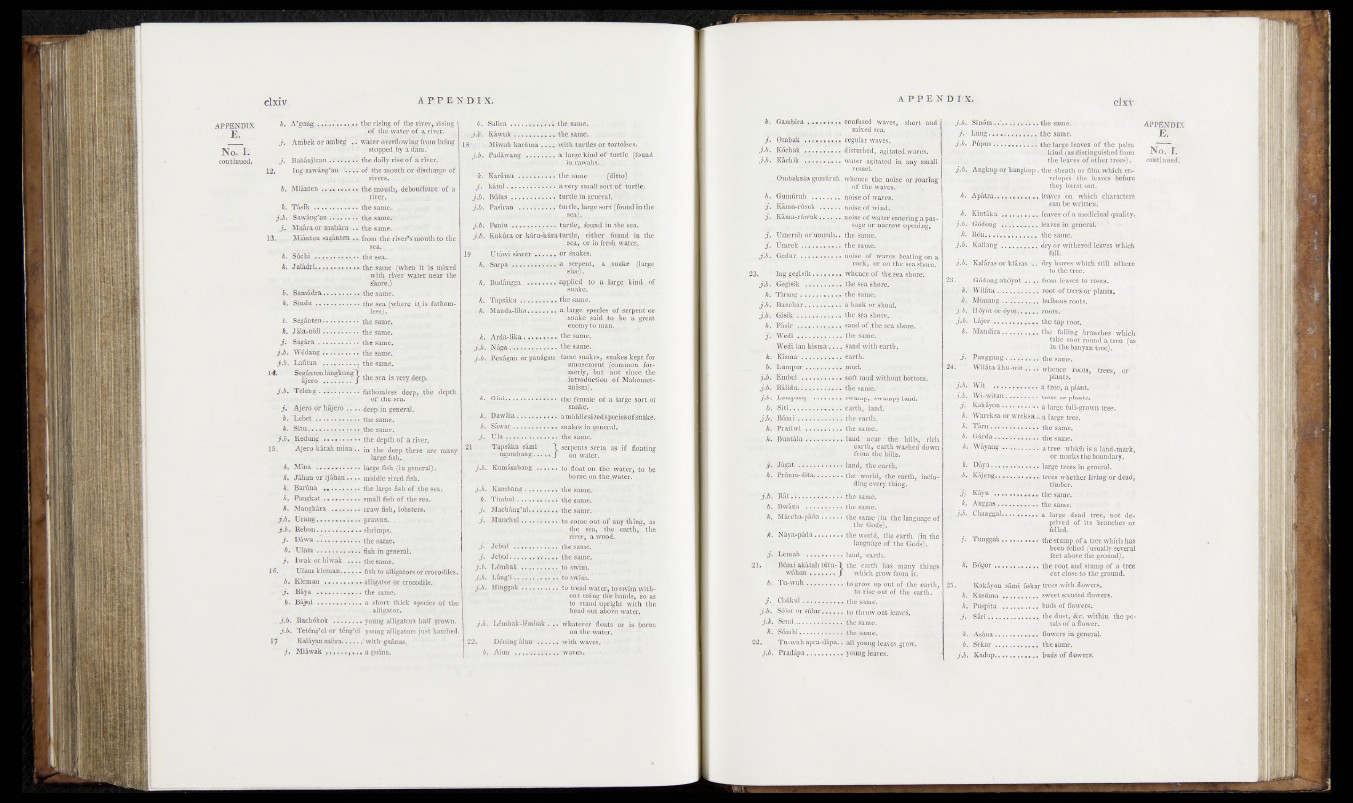 clxiv
APPENDIX.
APPENDIX
E.
No. I.
continued.
k. A'gung ............ the rising of the river, rising
of the water of a river.
j. Ambek or ambeg .. water overflowing from being
stopped by a dam.
j. Banánjiran ......... the daily rise of a river.
12. Ing sawáng'an .... of the mouth or discharge of
rivers.
k. Miánen ........... the mouth, debouchure of a
river.
k. Tásik ............. the same.
j.b. Sawáng'an ........ the same.
j. Muára or muhára .. the same.
13. Miánten sagánten .. from the river's mouth to the
sea.
k. Súchi ............. the sea.
k. Jaládri ............ the same (when it is mixed
with river water near the
shore.)
k. Samúdra .......... the same.
k. Sindu ............. the sea (where it is fathom-
less).
k. Segánten .......... the same.
k. Jála-nídi .......... the same.
j. Sagára ............ the same.
j.b. Wédang ........... the same.
j.b. Laútan ........... the same.
14. Segánten langkung ájero ......... } the sea is very deep.
j.b. Teleng ............ fathomless deep, the depth
of the sea.
j. Ajero or hájero .... deep in general.
k. Lebet ............. the same.
k. Situ ............... the same.
j.b. Kedung ........... the depth of a river.
15. Ajero kátah mína .. in the deep there are many
large fish.
k. Mína ............. large fish (in general).
k. Jáhan or ijáhan .... middle sized fish.
k. Barúna ........... the large fish of the sea.
k. Pangkat ........... small fish of the sea.
k. Mangkára ......... craw fish, lobsters.
j.b. Urang ............. prawns.
j.b. Rebon ............ shrimps.
j. Dáwa ............. the same.
k. Ulam ............. fish in general.
j. Iwak or hiwak .... the same.
16. Ulam kleman ...... fish to alligators or crocodiles.
k. Kleman ........... alligator or crocodile.
j. Báya ............. the same.
k. Bájul ............. a short thick species of the
alligator.
j.b. Bachókok ......... young alligators half grown.
j.b. Teténg'el or téng'el young alligators just hatched.
17 Kaláyan salira ...... with guánas.
j. Miáwak ........... a guána.
k. Salira ............. the same.
j.b. Káwuk ............ the same.
18 Miwah karúma .... with turtles or tortoises.
j.b. Paláwang ......... a large kind of turtle (found
in rawahs).
k. Karúma .......... the same (ditto)
j. kátul .............. a very small sort of turtle.
j.b. Búlus ............. turtle in general.
j.b. Pasíran ........... turtle, large sort (found in the
sea).
j.b. Peniu ............. turtle, found in the sea.
j.b. Kukúra or kúra-kúra turtle, either found in the
sea, or in fresh water.
19 Utáwi sáwer ....... or snakes.
k. Sarpa ............. a serpent, a snake (large
size).
k. Budángga ......... applied to a large kind of
snake.
k. Tapsáku .......... the same.
k. Manda-lika ........ a large species of serpent or
snake said to be a great
enemy to man.
k. Arda-líka .......... the same.
j.b. Nága ............. the same.
j.b. Penágan or panágan tame snakes, snakes kept for
amusement (common for-
merly, but not since the
introduction of Mahomet-
anism).
k. Gíni .............. the female of a large sort of
snake.
k. Dawála ........... a middle sized species of snake.
k. Sáwar ............ snakes in general.
j. Ula ............... the same.
21 Tapsáku sámi ngambang ...... } serpents seem as if floating
on water.
j.b. Kumámbang ...... to float on the water, to be
borne on the water.
j.b. Kambang .......... the same.
k. Timbul ........... the same.
j. Machúng'ul ....... the same.
j. Manchul .......... to come out of any thing, as
the sea, the earth, the
river, a wood.
j. Jebul ............. the same.
j. Jebol ............. the same.
j.b. Lémbak ........... to swim.
j.b. Láng'i ............. to swim.
j.b. Hinggak .......... to tread water, to swim with-
out using the hands, so as
to stand upright with the
head out above water.
j.b. Lémbak-lémbak ... whatever floats or is borne
on the water.
22. Déning álun ....... with waves.
k. Alun ............. waves.
APPENDIX.
clxv
k. Gambíra .......... confused waves, short and
mixed sea.
j. Ombak ........... regular waves.
j.b. Kóchak ........... disturbed, agitated waves.
j.b. Káchik ........... water agitated in any small
vessel.
Ombaknia gumúruh whence the noise or roaring
of the waves.
k. Gumúruh ......... noise of waves.
j. Káma-rúsuk ...... noise of wind.
j. Káma-ráwuk ...... noise of water entering a pas-
sage or narrow opening.
j. Umerah or umrah .. the same.
j. Unarek ........... the same.
j.b. Gedur ............ noise of waves beating on a
rock, or on the sea shore.
23. Ing gegísik ........ whence of the sea shore.
j.b. Gegísik ........... the sea shore.
k. Tirang ............ the same.
j.b. Banchar ........... a bank or shoal.
j.b. Gísik ............. the sea shore.
k. Pásir .............. sand of the sea shore.
j. Wedi ............. the same.
Wedi lan kisma .... sand with earth.
k. Kisma ............ earth.
k. Lumpur .......... mud.
j.b. Embel ............ soft mud without bottom.
j.b. Bálidu ............ the same.
j.b. swamp, swampy land.
k. Síti ............... earth, land.
j.b. Búmi ............. the earth.
k. Pratiwi ........... the same.
k. Buntála ........... land near the hills, rich
earth, earth washed down
from the hills.
j. Jágat ............. land, the earth.
k. Príma-síta ........ the world, the earth, inclu-
ding every thing.
j.b. Rát ............... the same.
k. Bwána ........... the same.
k. Márcha-páda ...... the same (in the language of
the Gods).
k. Náya-páda ........ the world, the earth (in the
language of the Gods).
j. Lemah ........... land, earth.
21. Búmi akátah tútu-wúhan ........ } the earth has many things
which grow from it.
k. Tu-wuh ........... to grow up out of the earth,
to rise out of the earth.
j. Chúkul ........... the same.
j.b. Súlor or súlur ...... to throw out leaves.
j.b. Semi ............. the same.
k. Sémbi ............ the same.
22. Tu-wuh apra-dápa .. all young leaves grow.
j.b. Pradápa .......... young leaves.
j.b. Sínóm ............ the same.
j. Lung .............. the same.
j.b. Púpus ............ the large leaves of the palm
kind (as distinguished from
the leaves of other trees).
j.b. Angkup or hangkup. the sheath or film which en-
velopes the leaves before
they burst out.
k. Apátra ............ leaves on which characters
can be written.
k. Kintáka .......... leaves of a medicinal quality.
j.b. Gódong .......... leaves in general.
k. Rón .............. the same.
j.b. Kaliang .......... dry or withered leaves which
fall.
j.b. Kaláras or kláras .. dry leaves which still adhere
to the tree.
23. Gódong ahóyot .... from leaves to roots.
k. Wiláta ............ root of trees or plants.
k. Minang ........... bulbous roots.
j.b. Hóyot or óyot ...... roots.
j.b. Lájer ............. the tap root.
k. Mandira ........... the falling branches which
take root round a tree (as
in the banyan tree).
j. Panggung ......... the same.
24. Wiláta áhu-wit .... whence roots, trees, or
plants.
j.b. Wit .............. a tree, a plant.
j.b. Wi-witan .......... trees or plants.
j. Kakáyon ........... a large full-grown tree.
k. Wareksa or wreksa .. a large tree.
k. Táru ............. the same.
k. Gúrda ............ the same.
k. Wáyang .......... a tree which is a land-mark,
or marks the boundary.
k. Dáya ............. large trees in general.
k. Kájeng ............ trees whether living or dead,
timber.
j. Káyu ............. the same.
k. Anggas ............ the same.
j.b. Chunggal .......... a large dead tree, not de-
prived of its branches or
felled.
j. Tunggak .......... the stump of a tree which has
been felled (usually several
feet above the ground).
k. Búgor ............ the root and stump of a tree
cut close to the ground.
25. Kakáyon sámi ásekar trees with flowers.
k. Kusúma ........... sweet scented flowers.
k. Puspíta ........... buds of flowers.
j. Sári ............... the dust, &c. within the pe-
tals of a flower.
k. Asána ............ flowers in general.
k. Sekar ............. the same.
j.b. Kudup ............ buds of flowers.
APPENDIX
E.
No. I.
continued.